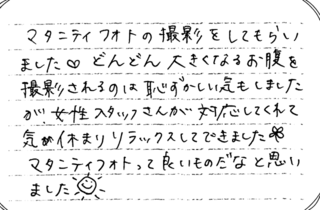 マタニティフォトの撮影をしてもらい
ました♡ どんどん大きくなるお腹を
撮影されるのは恥ずかしい気もしました
が、女性スタッフさんが対応してくれて
気が休まりリラックスしてできました
マタニティフォトって良いものだなと思い
ました